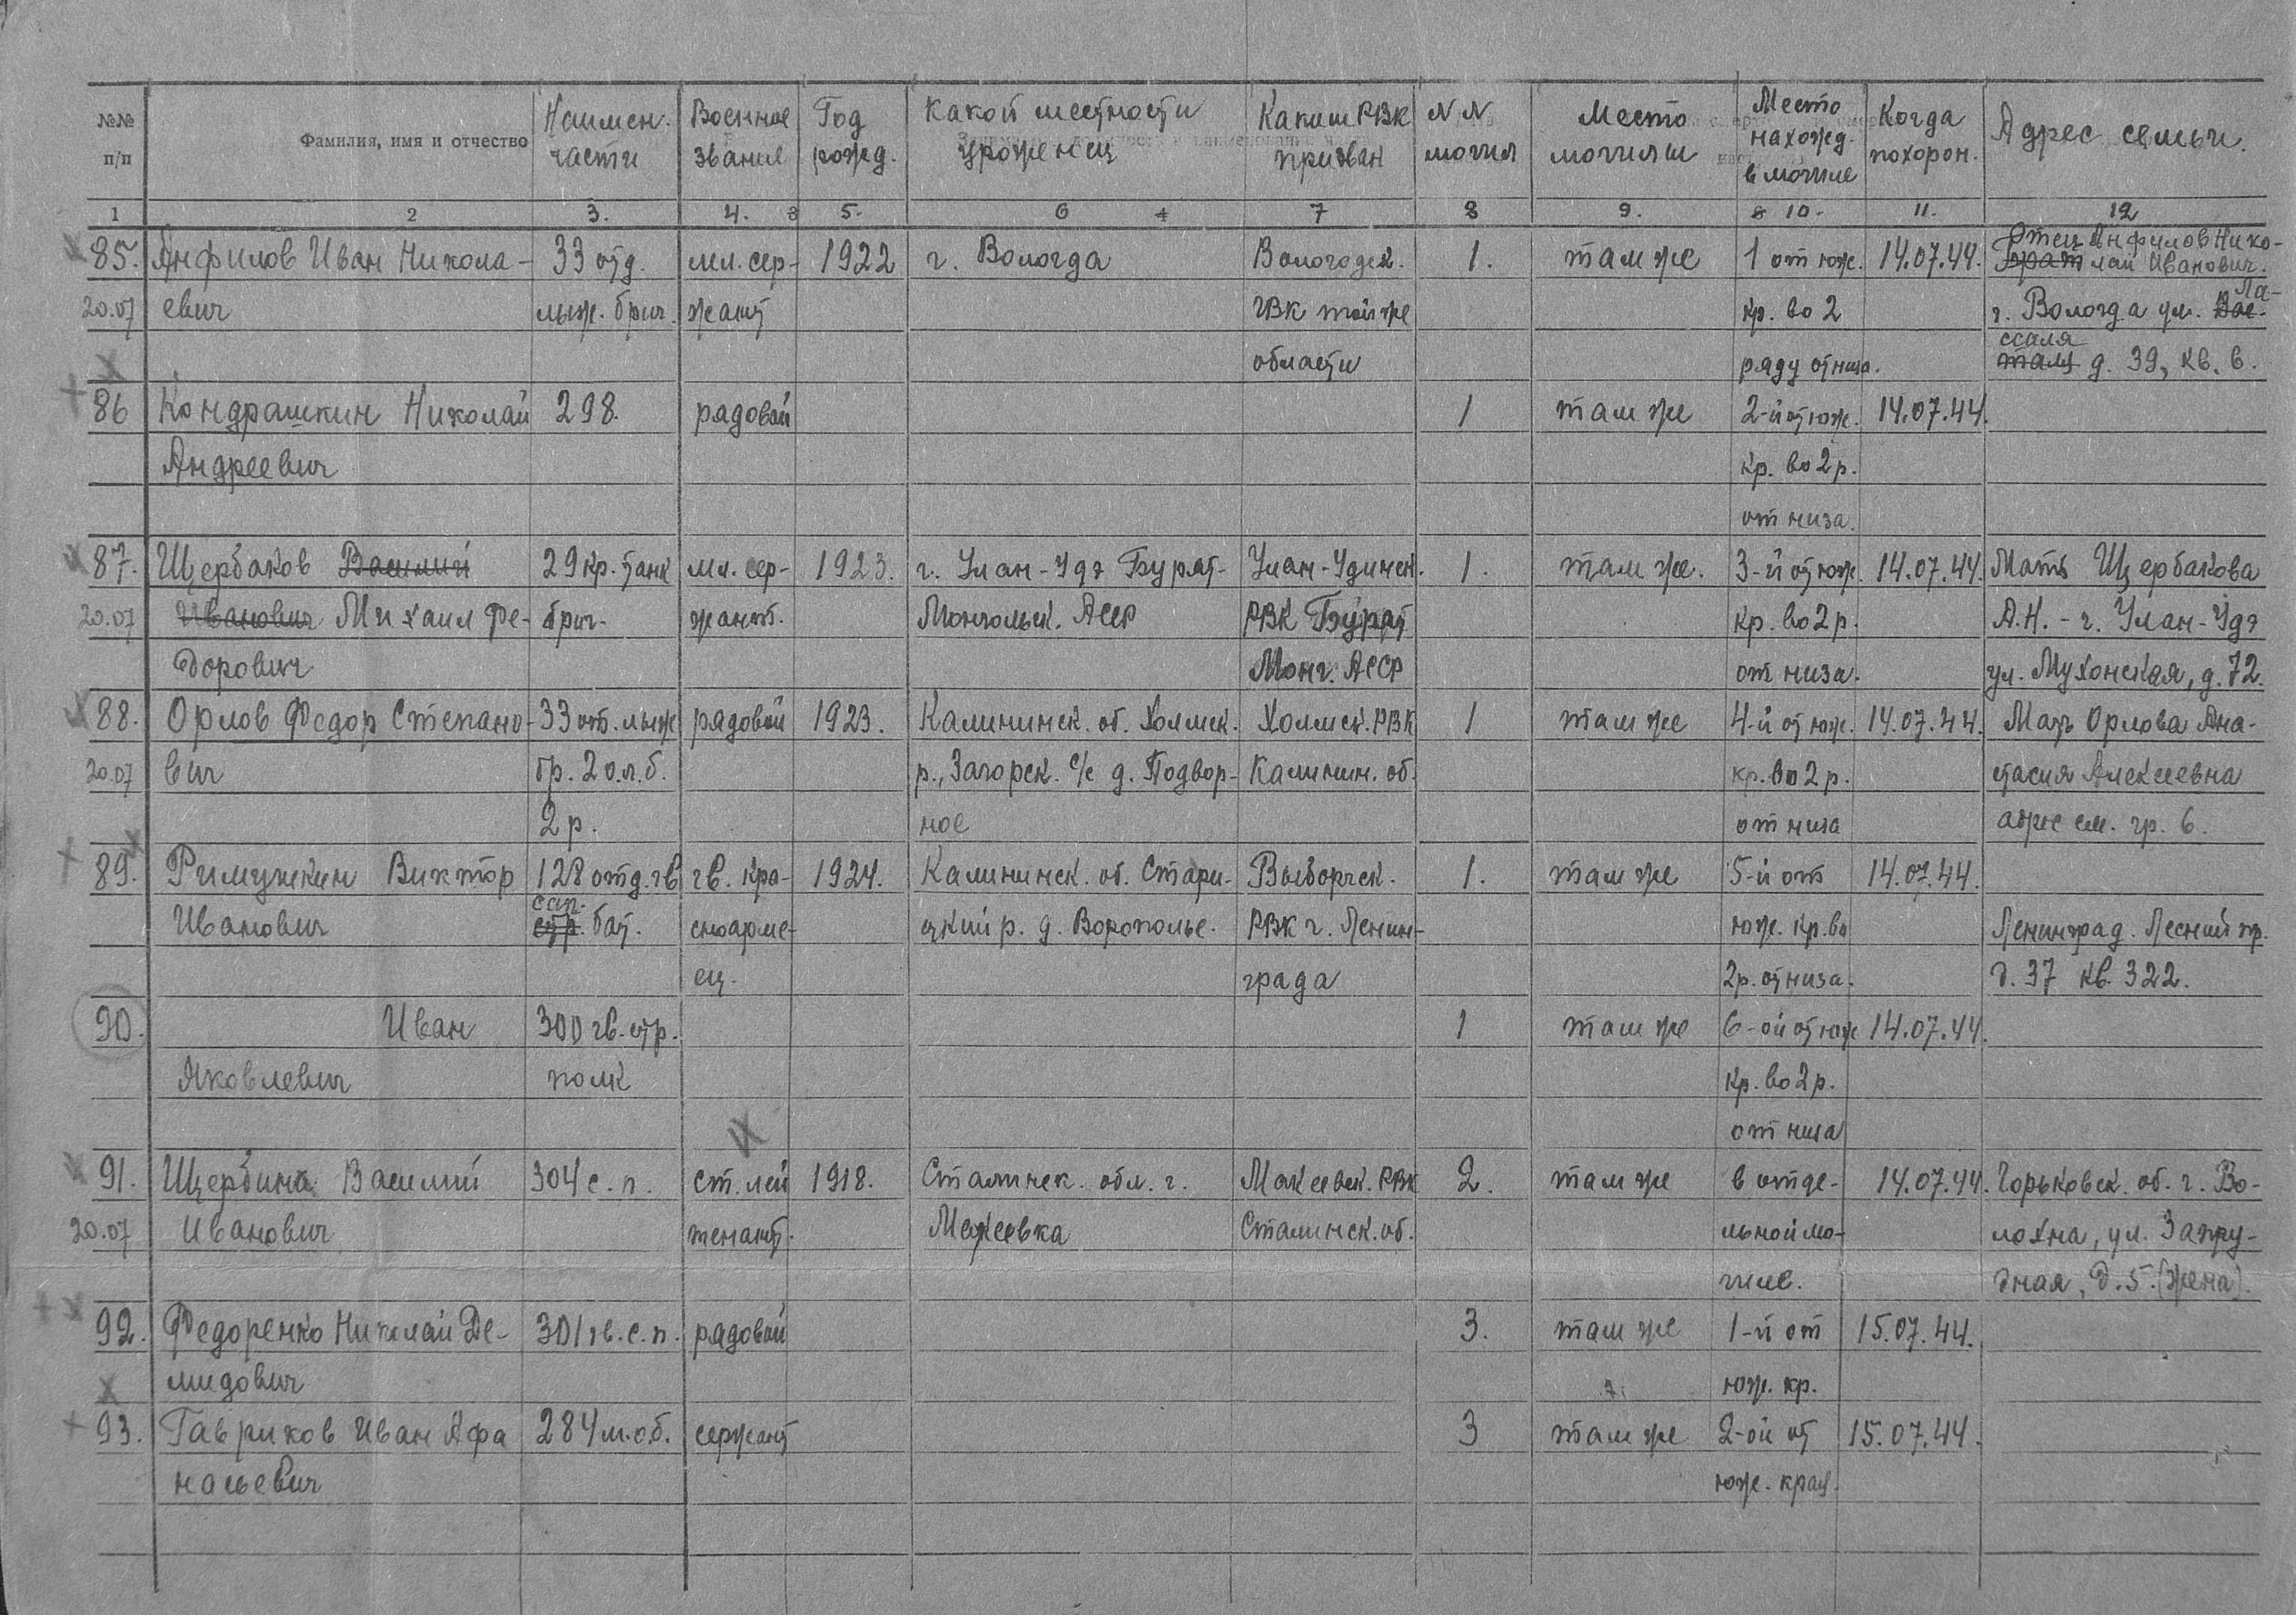 №№ п/п | Фамилия, имя и отчество | Наимен. части | Военное звание | Год рожд. | Какой местности уроженец | Каким РВК призван | N N могил | Место могилы | Место нахожд. в могиле | Когда похорон. | Адрес семьи.
1 | 2 | 3. | 4. | 5. | 6 | 7 | 8 | 9. | 10. | 11. | 12
85. Анфилов Иван Никола- | 33 отд. | мл. сер- | 1922 | г. Вологда | Вологодск. | 1. | там же | 1 от юж. | 14.07.44. | Отец Анфилов Нико-
брат лай Иванович.
20.07 | евич | лыж. бриг. | жант | ГВК той же | кр. во 2 | г. Вологда ул. Вос- Ла-
области | ряду от низа. | ссаля д. 39, кв. 6.
86 | Кондрашкин Николай | 298. | рядовой | 1 | там же | 2-й от юж. | 14.07.44.
Андреевич | кр. во 2 р.
от низа.
87. | Щербаков Василий | 29 кр. танк | мл. сер- | 1923. | г. Улан-Удэ Бурят- | Улан-Удинск. | 1. | там же. | 3-й от юж. | 14.07.44. | Мать Щербакова
20.07 | Иванович Михаил Фе- | бриг. | жант. | Монгольск. АССР | РВК Бурят | кр. во 2 р. | А.Н. - г. Улан-Удэ
дорович | Монг. АССР | от низа. | ул. Мухонская, д. 72.
88. | Орлов Федор Степано- | 33 от. лыж | рядовой | 1923. | Калининск. об. Холмск. | Холмск. РВК | 1 | там же | 4-й от юж. | 14.07.44. | Мать Орлова Ана-
20.07 | вич | бр. 2 о.л.б. | р., Загорск. с/с д. Подвор- | Калинин. об. | кр. во 2 р. | стасия Алексеевна
2 р. | ное | от низа | адрес см. гр. 6.
89. | Римушкин Виктор | 128 отд. гв | гв. кра- | 1924. | Калининск. об. Стари- | Выборгск. | 1. | там же | 5-й от | 14.07.44.
Иванович | сап. стр. бат. | сноарме- | цкий р. д. Ворополье. | РВК г. Ленин- | юж. кр. во | Ленинград. Лесной пр.
ец. | града | 2 р. от низа. | д. 37 кв. 322.
90. | Иван | 300 гв. стр. | 1 | там же | 6-ой от юж | 14.07.44.
Яковлевич | полк | кр. во 2 р.
от низа
91. | Щербина Василий | 304 с. п. | ст. лей | 1918. | Сталинск. обл. г. | Макеевск. РВК | 2. | там же | в отде- | 14.07.44. | Горьковск. об. г. Во-
20.07 | Иванович | тенант. | Макеевка | Сталинск. об. | льной мо- | лохна, ул. Запру-
гиле. | дная, д. 5. (жена)
92. | Федоренко Николай Де- | 301 гв. с. п. | рядовой | 3. | там же | 1-й от | 15.07.44.
мидович | юж. кр.
93. | Гавриков Иван Афа | 284 м.о.б. | сержант | 3 | там же | 2-ой от | 15.07.44.
насьевич | юж. края.